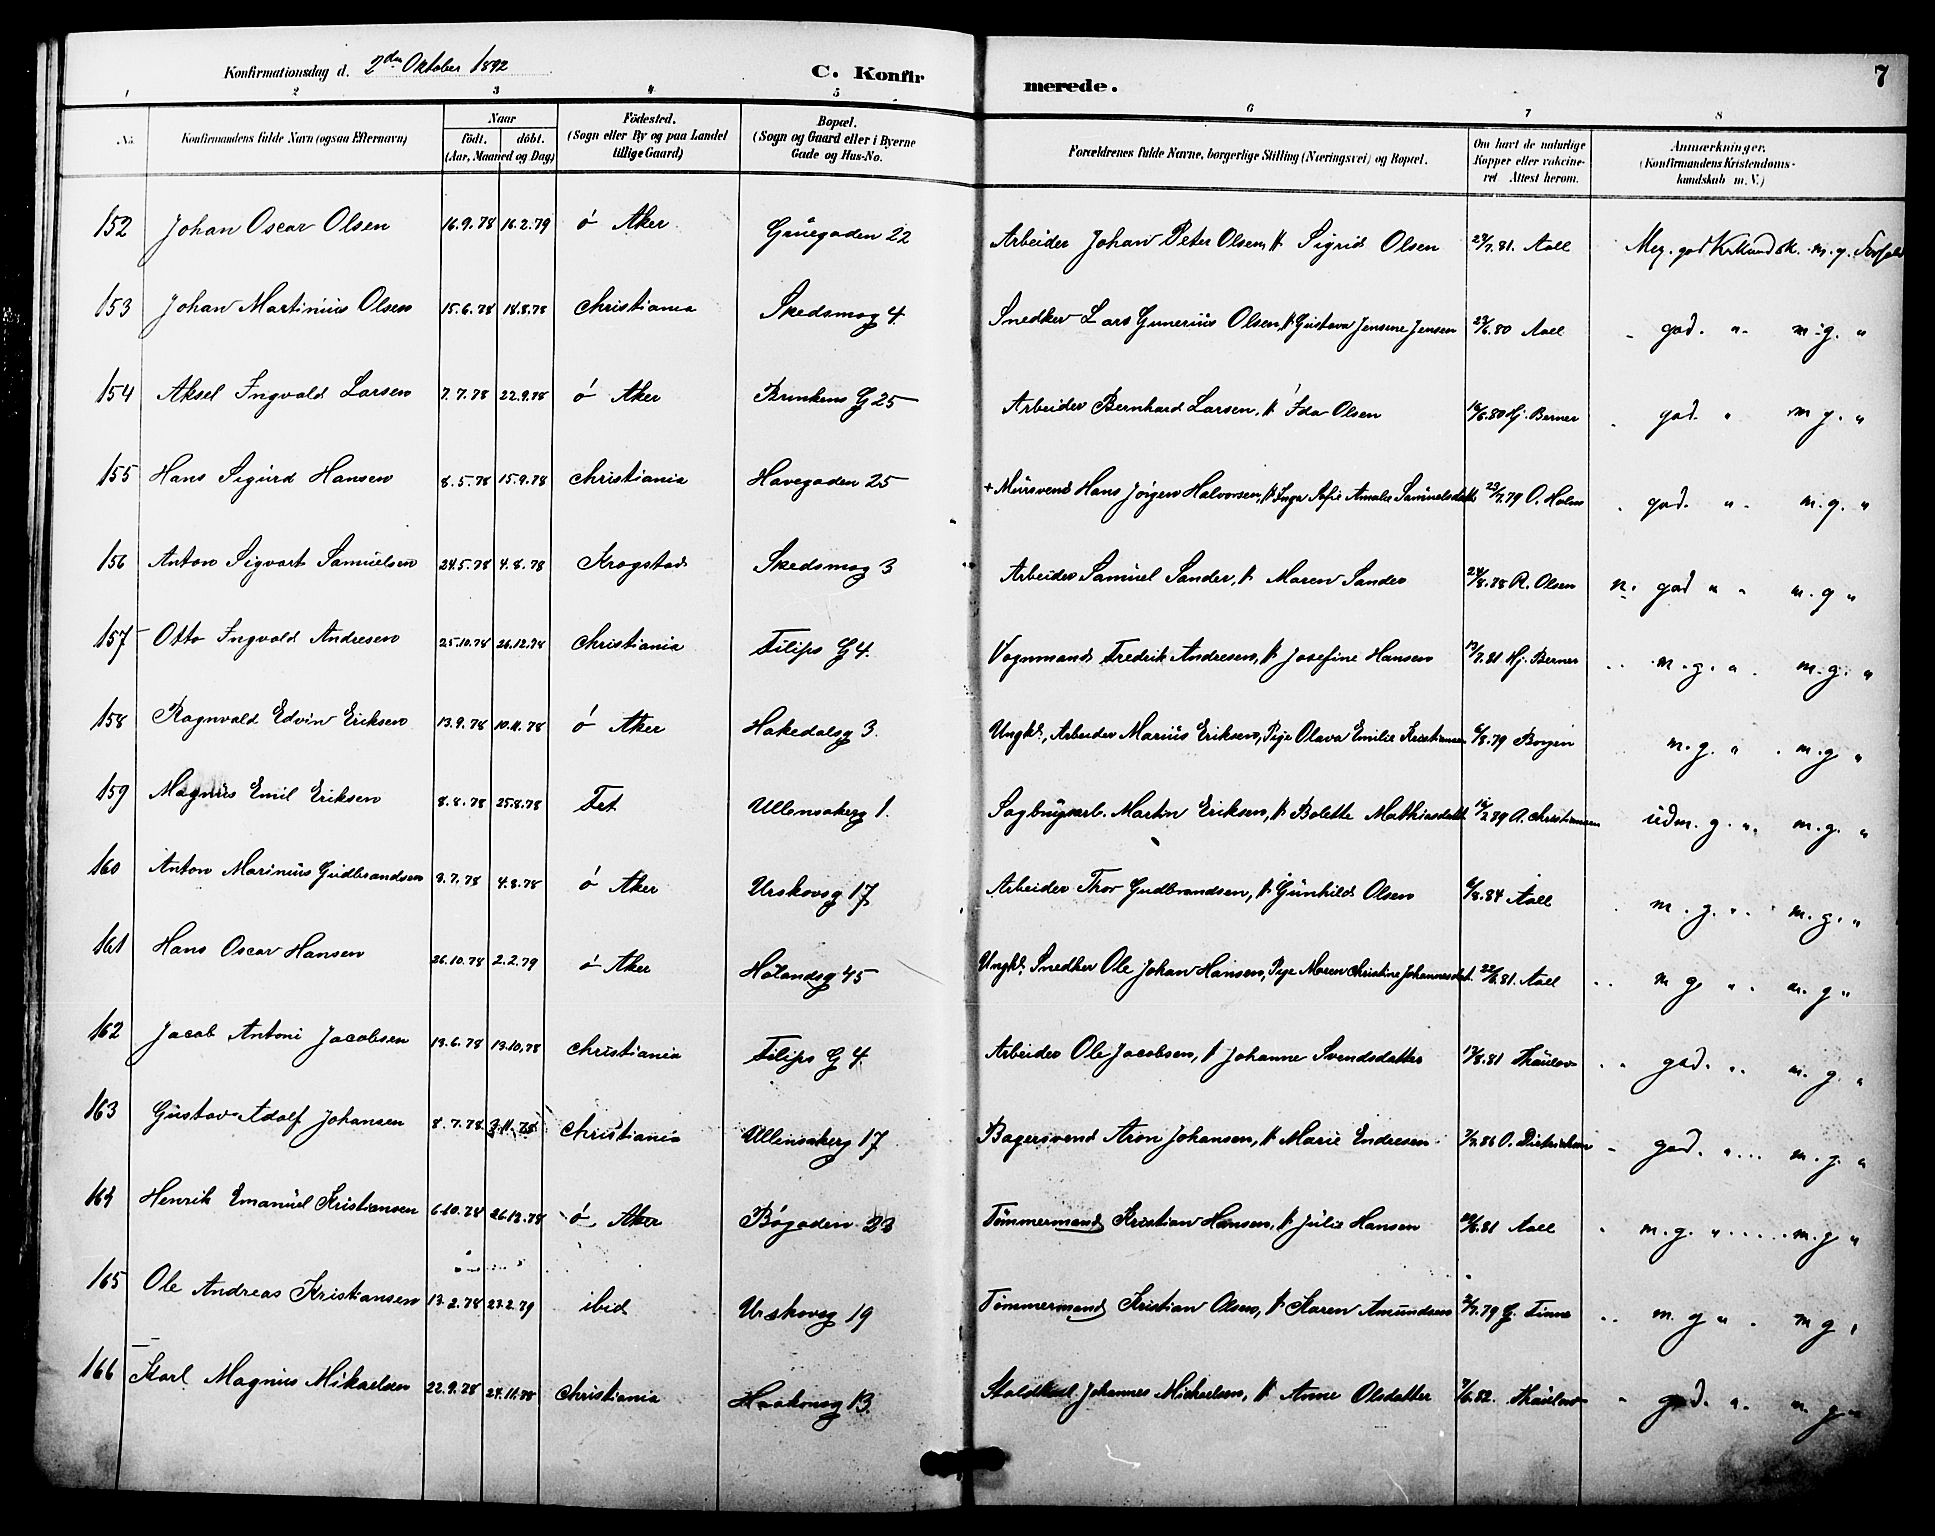 Konfirmationsdag d. 2den Oktober 1892 C. Konfirmerede. 7
1 2 3 4 5 6 7 8
No. Konfirmandens fulde Navn (ogsaa Efternavn) Naar födt. döbt. (Aar, Maaned og Dag) Födested. (Sogn eller By og paa Landet tillige Gaard) Bopæl. (Sogn og Gaard eller i Byerne Gade og Hus-No. Forældrenes fulde Navne, borgerlige Stilling (Næringsvei) og Bopæl. Om havt de naturlige Kopper eller vakcineret Attest herom. Anmærkninger. (Konfirmandens Kristendomskundskab m. V.)
152 Johan Oscar Olsen 16.9.78 16.2.79 ö Aker Grüegaden 22 Arbeider Johan Peter Olsen, h Sigrid Olsen 29/7.81 Aall Meg. god Kr.kundsk. m.g. Forhold
153 Johan Martinius Olsen 15.6.78 18.8.78 Christiania Skedsmog 4. Snedker Lars Gunerius Olsen, h Gustava Jensine Jensen 22/6.80 Aall " god. " m.g. "
154 Aksel Ingvald Larsen 7.7.78 22.9.78 ö Aker Brinkens G 25 Arbeider Bernhard Larsen, h Ida Olsen 16/6.80 Hj. Berner god. " m g. "
155 Hans Sigurd Hansen 8.5.78 15.9.78 Christiania Havegaden 25 + Mursvend Hans Jörgen Halvorsen, h Inga Sofie Amalie Samuelsdatt. 23/7.79 O. Holm god. " m.g. "
156 Anton Sigvart Samuelsen 24.5.78 4.8.78 Krogstad Skedsmog 3 Arbeider Samuel Sander, h Maren Sander 24/8.78 R. Olsen n. god " " m.g "
157 Otto Ingvald Andresen 25.10.78 26.12.78 Christiania Filips G 4. Vognmand Fredrik Andresen, h Josefine Hansen 13/7.81 Hj. Berner m.g. " m.g. "
158 Ragnvald Edvin Eriksen 13.9.78 10.11.78 ö Aker Hakedalsg 3. Ungk., Arbeider Marius Eriksen, Pige Olava Emilie Kristiansen 6/8.79 Borgen m.g. " m.g "
159 Magnus Emil Eriksen 8.8.78 25.8.78 Fet Ullensakerg 1. Sagbrugsarb. Martin Eriksen, h Bolette Mathiasdatt. 14/2.89 A. Christiansen udm. g. " m.g. "
160 Anton Marinius Gudbrandsen 9.7.78 4.8.78 ö Aker Urskovsg 17 Arbeider Thor Gudbrandsen, h Gunhild Olsen 6/8.84 Aall m.g. " m.g. "
161 Hans Oscar Hansen 26.10.78 2.2.79 ö Aker Hölandsg 45 Ungk. Snedker Ole Johan Hansen, Pige Maren Christine Johannesdat. 22/6.81. Aall m g. " m. g "
162 Jacob Antoni Jacobsen 13.6.78 13.10.78 Christiania Filips G 4. Arbeider Ole Jacobsen, h Johanne Svendsdatter 17/8.81 Thaulow god. " m. g. "
163 Gustav Adolf Johansen 8.7.78 3.11.78 Christiania Ullensakerg 17 Bagersvend Aron Johansen, h Marie Endresen 7/7.86 O. Dietrichson god. " m.g. "
164 Henrik Emanuel Kristiansen 6.10.78 26.12.78 ö. Aker Bögaden 23 Tömmermand Kristian Hansen, h Julie Hansen 20/6.81 Aall m.g. " m.g "
165 Ole Andreas Kristiansen 13.2.78 23.2.79 ibid Urskovsg 19 Tömmermand Kristian Olsen, h Karen Amundsen 2/7.79 G. Finne m. g " m g "
166 Karl Magnus Mikaelsen 22.9.78 24.11.78 Christiania Haakonsg 13. Staldkarl Johannes Michaelsen, h Anne Olsdatter 7/6.82. Thaulow god. " m. g "